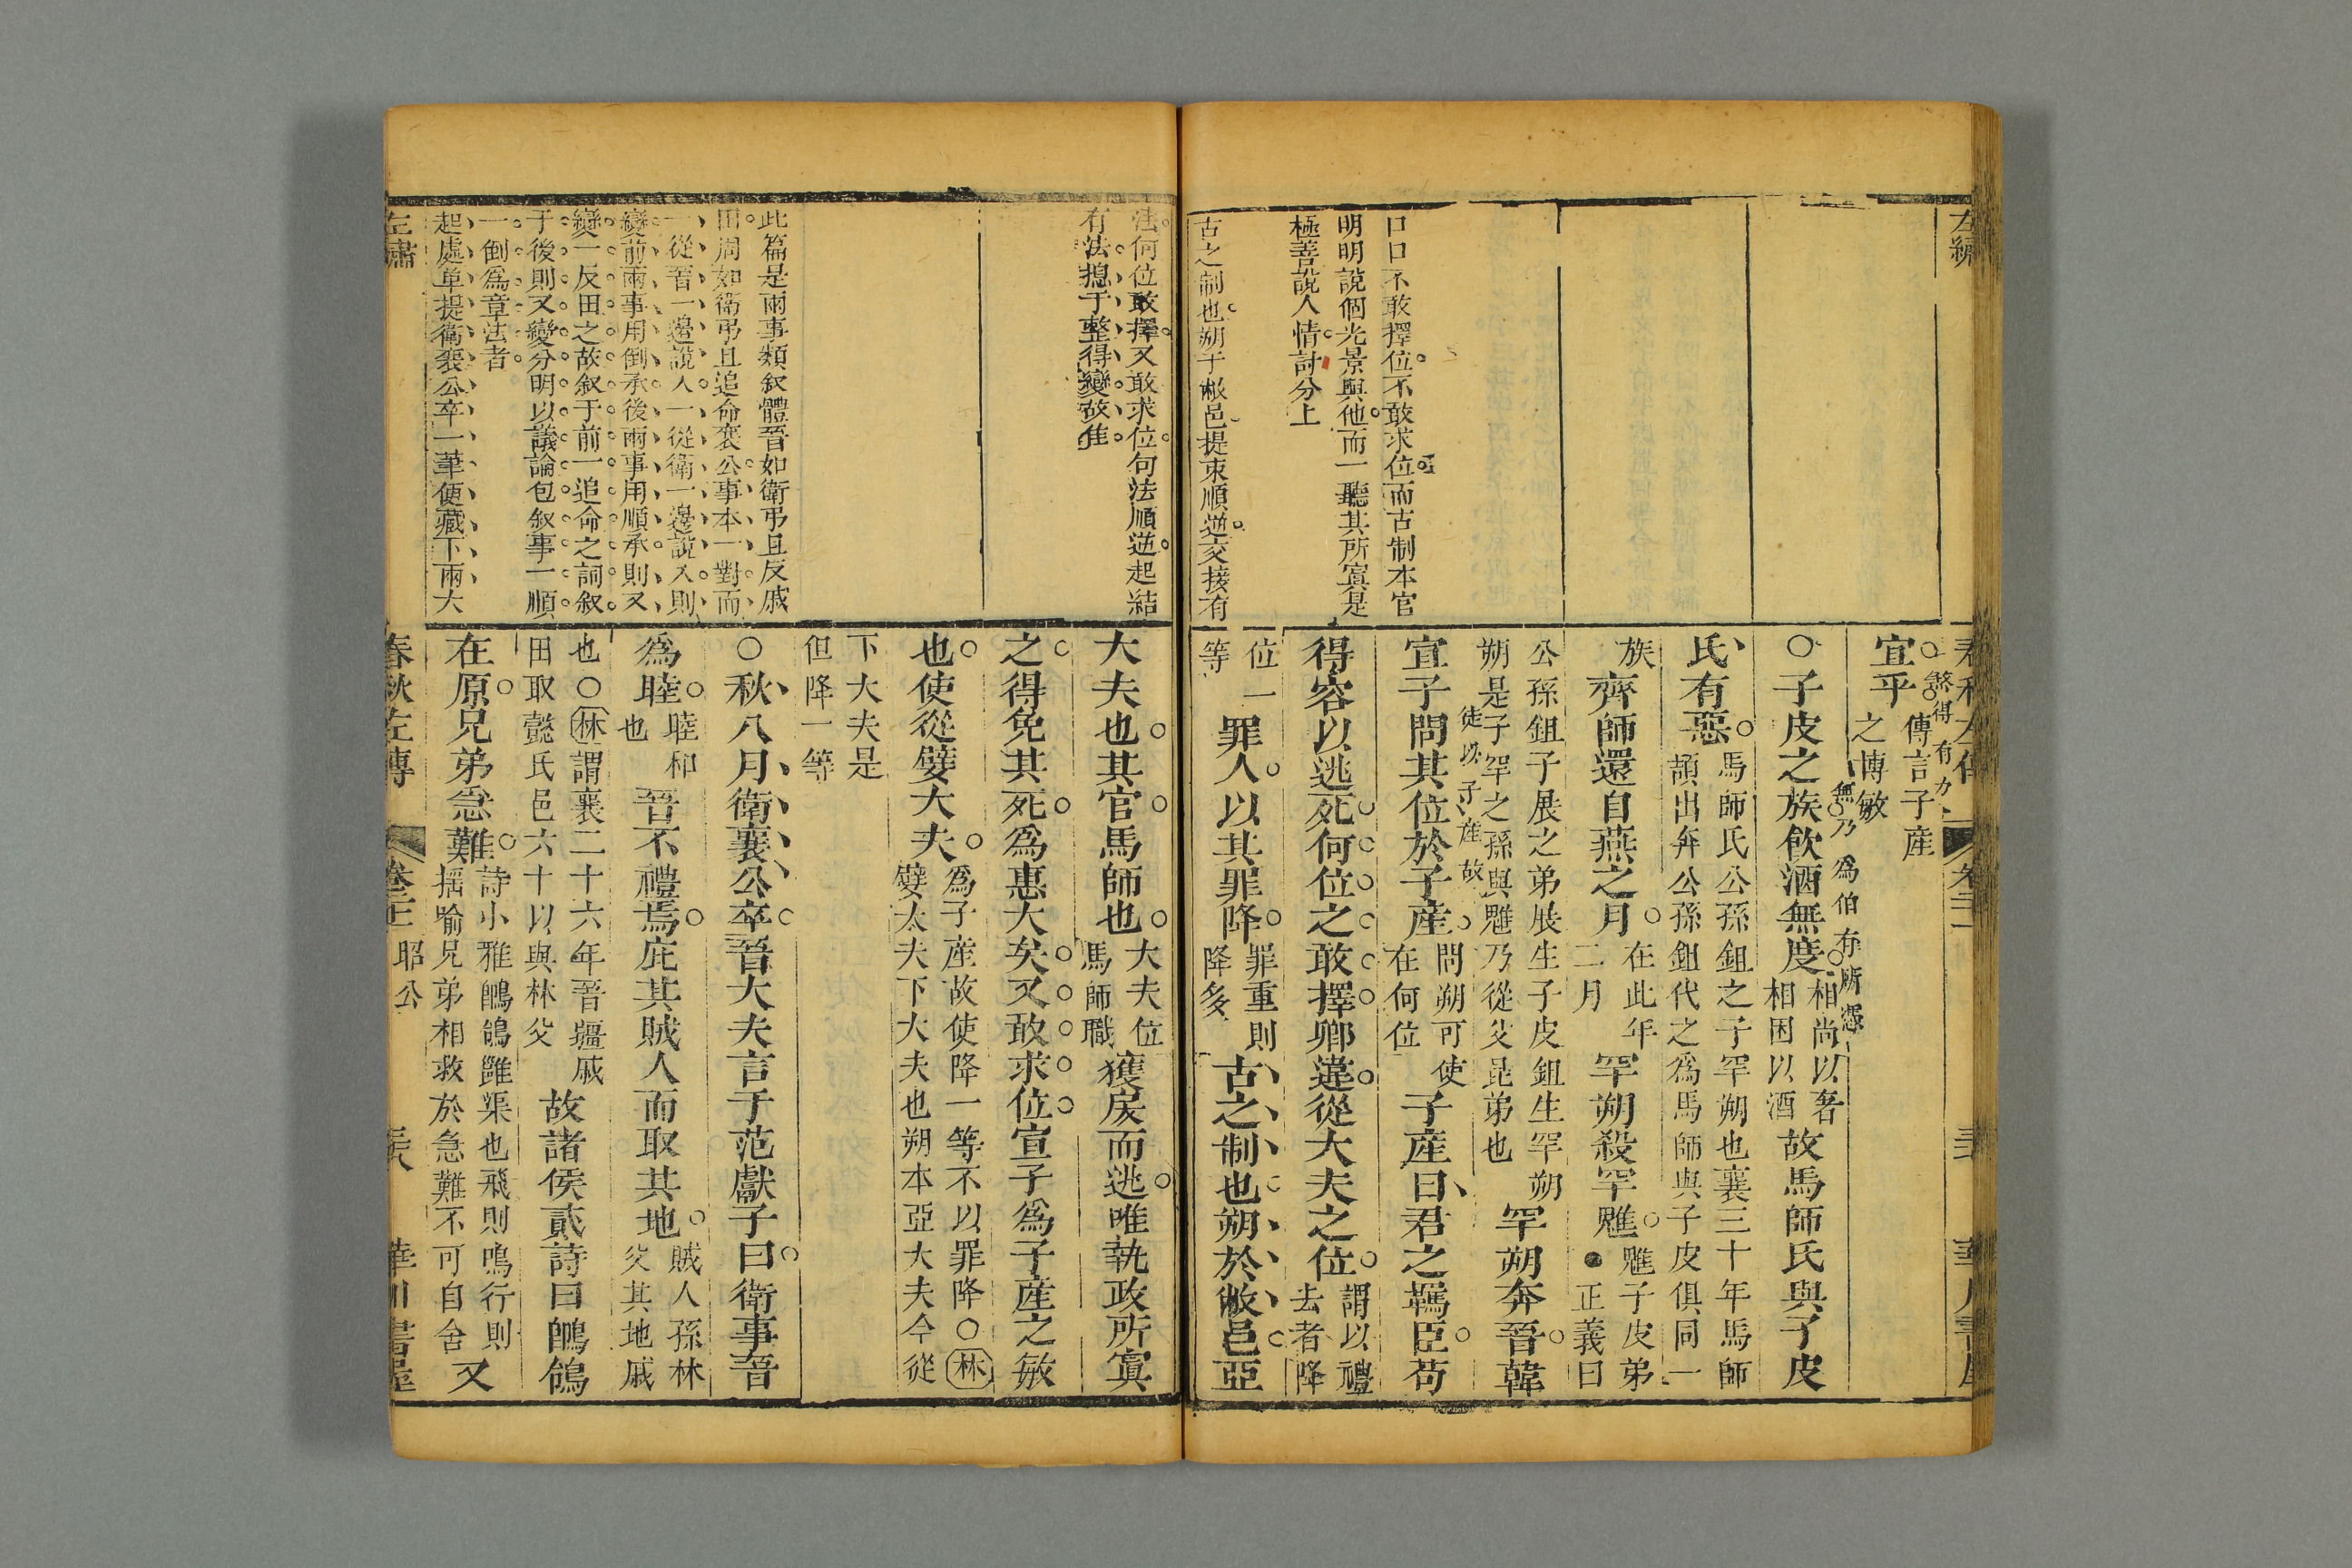 左繡
口口不敢擇位不敢求位而古制本官
明明說個光景與他而一聽其所寘是
極善說人情討分上
古之制也朔于敝邑提束順逆交接有
春秋左傳
宜乎傳言子產
之博敏
煞得有力
無乃為伯有所憑
○子皮之族飲酒無度相尚以奢
相困以酒故馬師氏與子皮
氏有惡馬師氏公孫鉏之子罕朔也襄三十年馬師
頡出奔公孫鉏代之為馬師與子皮俱同一
族齊師還自燕之月在此年
二月罕朔殺罕魋魋子皮弟
●正義曰
公孫鉏子展之弟展生子皮鉏生罕朔
朔是子罕之孫與魋乃從父昆弟也罕朔奔晉韓
徒以子產故
宣子問其位於子產問朔可使
在何位子產曰君之羈臣苟
得容以逃死何位之敢擇卿違從大夫之位謂以禮
去者降
位一
等罪人以其罪降罪重則
降多古之制也朔於敝邑亞
法何位敢擇又敢求位句法順逆起結
有法總于整得變故佳
大夫也其官馬師也大夫位
馬師職獲戾而逃唯執政所寘
之得免其死為惠大矣又敢求位宣子為子產之敏
也使從嬖大夫為子產故使降一等不以罪降○林
嬖大夫下大夫也朔本亞大夫今從
下大夫是
但降一等
此篇是兩事類叙體晉如衛弔且反戚
田周如衛弔且追命襄公事本一對而
一從晉一邊說人一從衛一邊說入則
變前兩事用倒承後兩事用順承則又
變一反田之故叙于前一追命之詞叙
于後則又變分明以議論包叙事一順
一倒為章法者
起處單提衛襄公卒一筆便藏下兩大
○秋八月衛襄公卒晉大夫言于范獻子曰衛事晉
為睦睦和
也晉不禮焉庇其賊人而取其地賊人孫林
父其地戚
也○林謂襄二十六年晉疆戚
田取懿氏邑六十以與林父故諸侯貳詩曰鶺鴒
在原兄弟急難詩小雅鶺鴒雝渠也飛則鳴行則
搖喻兄弟相救於急難不可自舍又
左繡
春秋左傳
昭公
華川書屋